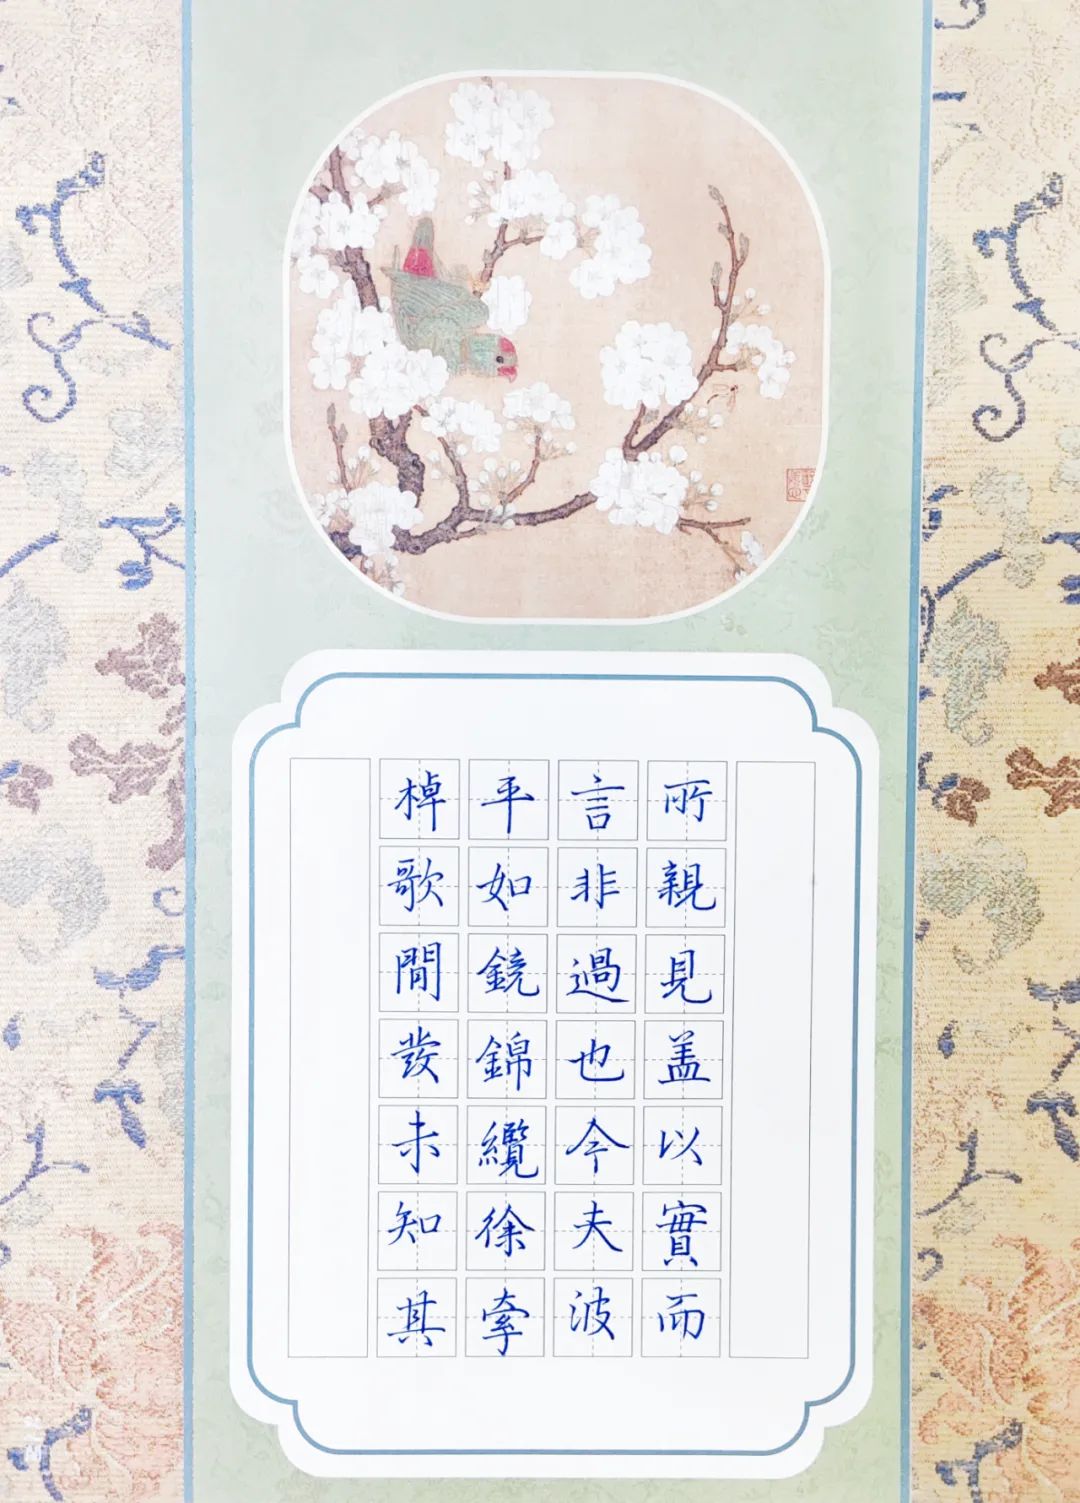 所親見盖以實而
言非過也今夫波
平如鏡錦纜徐牽
棹歌閒發未知其